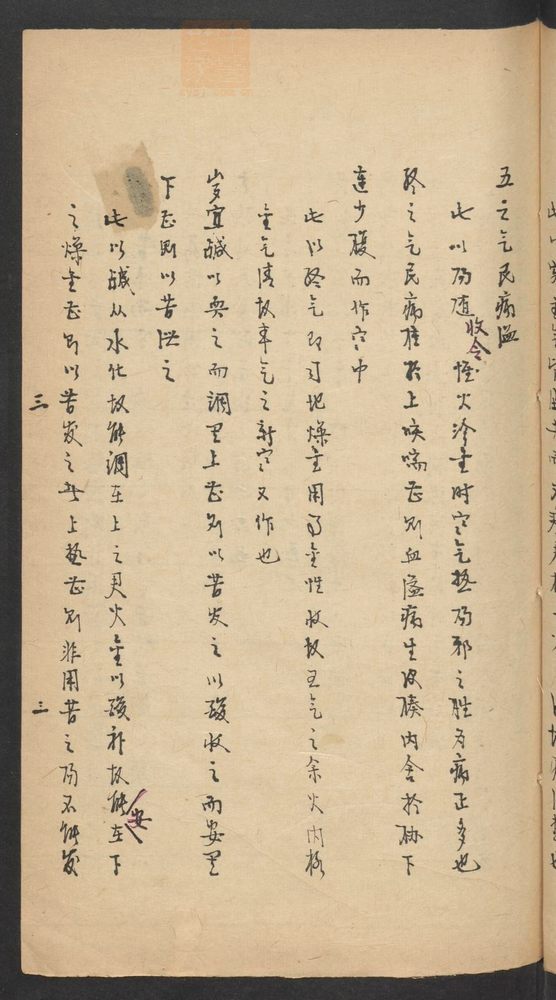 五之气民病温
此以阳随收令惟火冷主时客气热阳邪之胜为病正多也
终之气民病腫於上咳喘甚则血溢病生皮腠内舍於胁下
連少腹而作寒中
此以终气即司地燥金用事金性收故五气之余火内格
金气清故本气之新寒又作也
岁宜鹹以耎之而調其上甚则以苦发之以酸收之而安其
下甚则以苦泄之
此以鹹从水化故能調在上之君火金以酸补故能安在下
之燥金甚则以苦发之此上热甚则非用苦之阳不能发
三
三